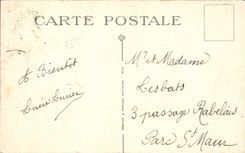 CARTE POSTALE
A Bientot
Mr et Madame
Lisbats
3 passage Rabelais
Parc St Maur